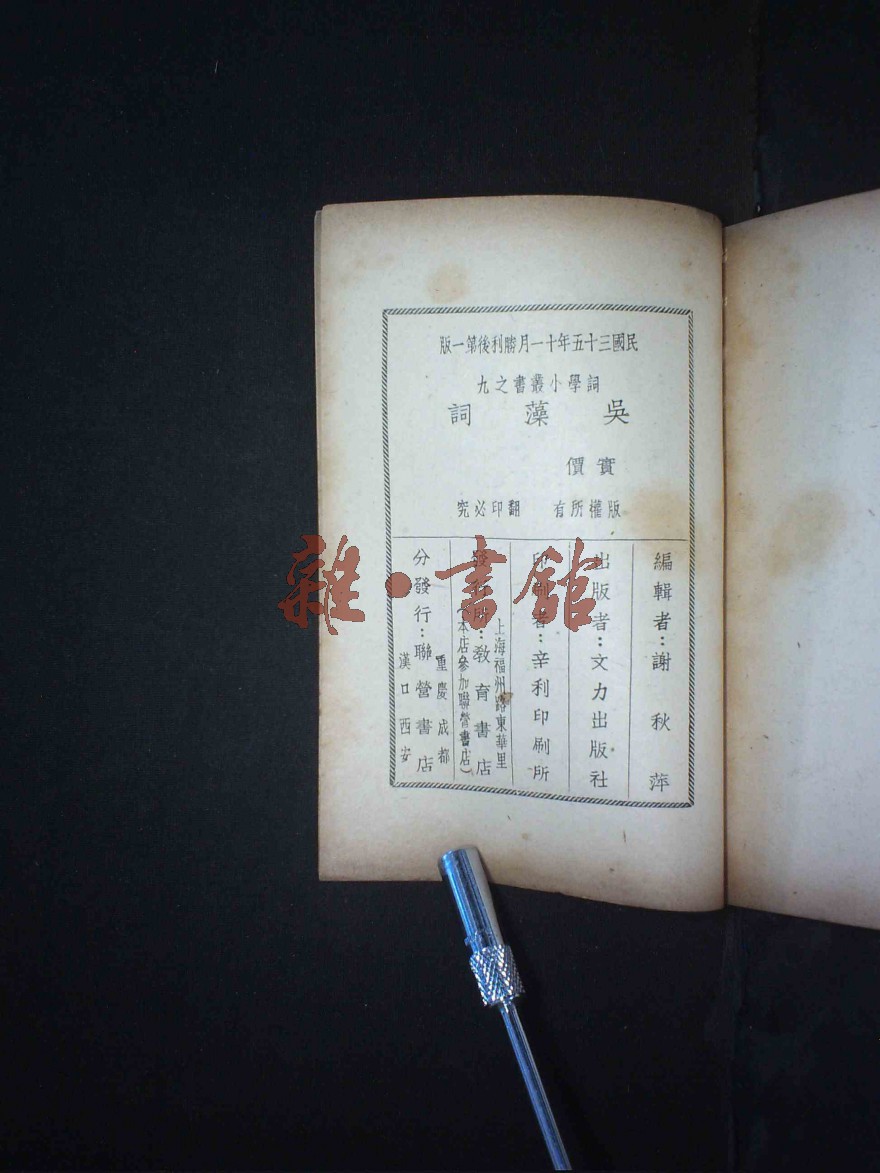 民國三十五年十一月勝利後第一版
詞學小叢書之九
吳藻詞
實價
版權所有 翻印必究
編輯者：謝秋萍
出版者：文力出版社
印刷者：辛利印刷所
上海福州路東華里
發行所：教育書店
（本店參加聯營書店）
重慶成都
分發行：聯營書店
漢口西安
雜·書館